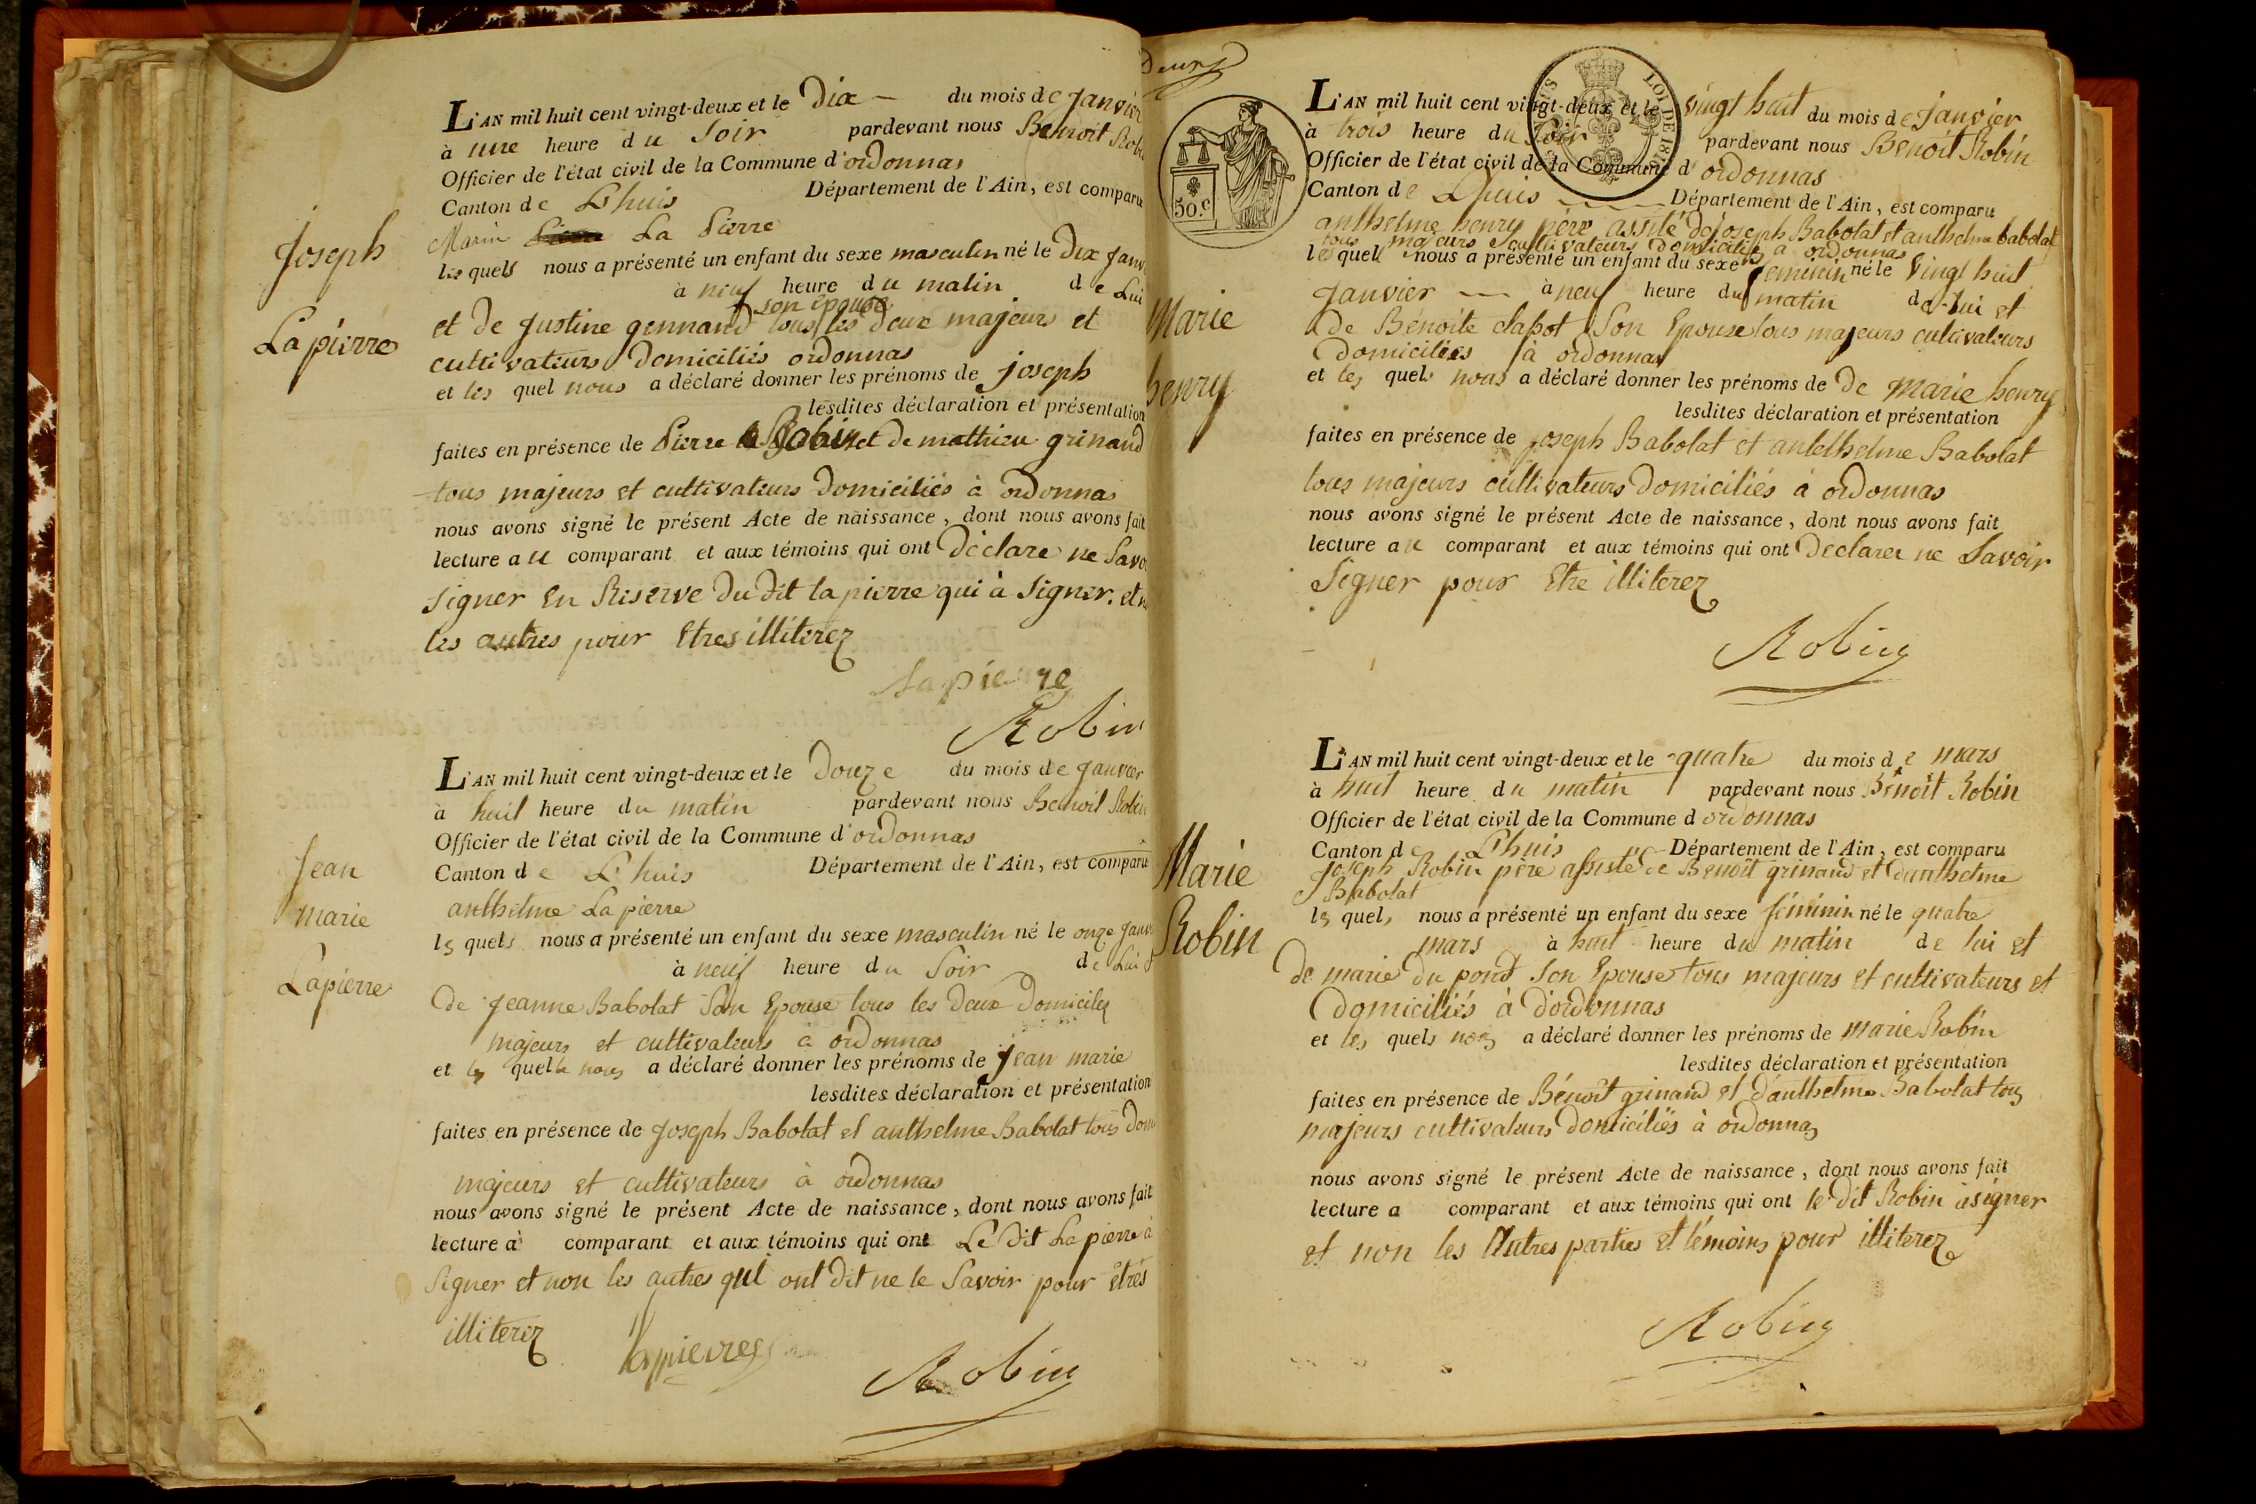 L'AN mil huit cent vingt-deux et le Dix du mois de Janvier
à une heure du Soir pardevant nous Benoit Robin
Officier de l'état civil de la Commune d'ordonnas
Canton de L'huis Département de l'Ain, est comparu
Marin La Pierre
Joseph
les quels nous a présenté un enfant du sexe masculin né le Dix Janv
à neuf heure du matin de Lui
son épouse
Lapierre
et de Justine gennand tous les deux majeurs et
cultivateurs Domiciliés ordonnas
et les quel nous a déclaré donner les prénoms de joseph
lesdites déclaration et présentation
faites en présence de Pierre Robin et de mathieu grinand
tous majeurs et cultivateurs Domiciliés à ordonnas
nous avons signé le présent Acte de naissance, dont nous avons fait
lecture au comparant et aux témoins qui ont Déclare ne Savoi
signer En Reserve Du dit lapierre qui à signer. et n
les autres pour Etres illiterez
Lapierre
Robin
L'AN mil huit cent vingt-deux et le Douze du mois de Janvier
à huit heure du matin pardevant nous Benoit Robin
Officier de l'état civil de la Commune d'ordonnas
Canton de L'huis Département de l'Ain, est comparu
Jean
marie
Lapierre
anthelme La pierre
les quels nous a présenté un enfant du sexe masculin né le onze Janv
à neuf heure du Soir de Lui
de Jeanne Babolat Son Epouse tous les Deux Domiciles
majeurs et cultivateurs à ordonnas
et les quel nous a déclaré donner les prénoms de Jean marie
lesdites déclaration et présentation
faites en présence de Joseph Babolat et anthelme Babolat tous Dom
majeurs et cultivateurs à ordonnas
nous avons signé le présent Acte de naissance, dont nous avons fait
lecture à comparant et aux témoins qui ont Le Dit La pierre à
Signer et non les autres qui ont dit ne le Savoir pour êtres
illiterez
lapierre
Robin
Deux
50.c
LOI DE 1816
L'AN mil huit cent vingt-deux et le vingt huit du mois de Janvier
à trois heure du Soir pardevant nous Benoit Robin
Officier de l'état civil de la Commune d'ordonnas
Canton de Lhuis Département de l'Ain, est comparu
anthelme henry père assité de joseph Babolat et anthelme babolat
tous majeurs cultivateurs Domiciliés à ordonnas
les quel nous a présenté un enfant du sexe feminin né le vingt huit
Janvier à neuf heure du matin de Lui et
Marie
henry
de Bénoite clapot Son Epouse tous majeurs cultivateurs
Domiciliées à ordonnas
et les quels nous a déclaré donner les prénoms de De Marie henry
lesdites déclaration et présentation
faites en présence de joseph Babolat et anthelme Babolat
tous majeurs cultivateurs Domiciliés à ordonnas
nous avons signé le présent Acte de naissance, dont nous avons fait
lecture au comparant et aux témoins qui ont Déclarer ne Savoir
Signer pour Etre illiterez
Robin
L'AN mil huit cent vingt-deux et le quatre du mois de mars
à huit heure du matin pardevant nous Bénoit Robin
Officier de l'état civil de la Commune d ordonnas
Canton de L'huis Département de l'Ain, est comparu
Joseph Robin père assisté de Benoit grinand et Danthelme
Babolat
Marie
Robin
les quels nous a présenté un enfant du sexe féminin né le quatre
mars à huit heure du matin de lui et
de marie du pond Son Epouse tous majeurs et cultivateurs et
Domiciliés à D'ordonnas
et les quels nous a déclaré donner les prénoms de marie Robin
lesdites déclaration et présentation
faites en présence de Bénoit grinand et d'anthelme Babolat tous
majeurs cultivateurs Domiciliés à ordonnas
nous avons signé le présent Acte de naissance, dont nous avons fait
lecture a comparant et aux témoins qui ont le dit Robin à signer
et non les Autres parties et témoins pour illiterez
Robin